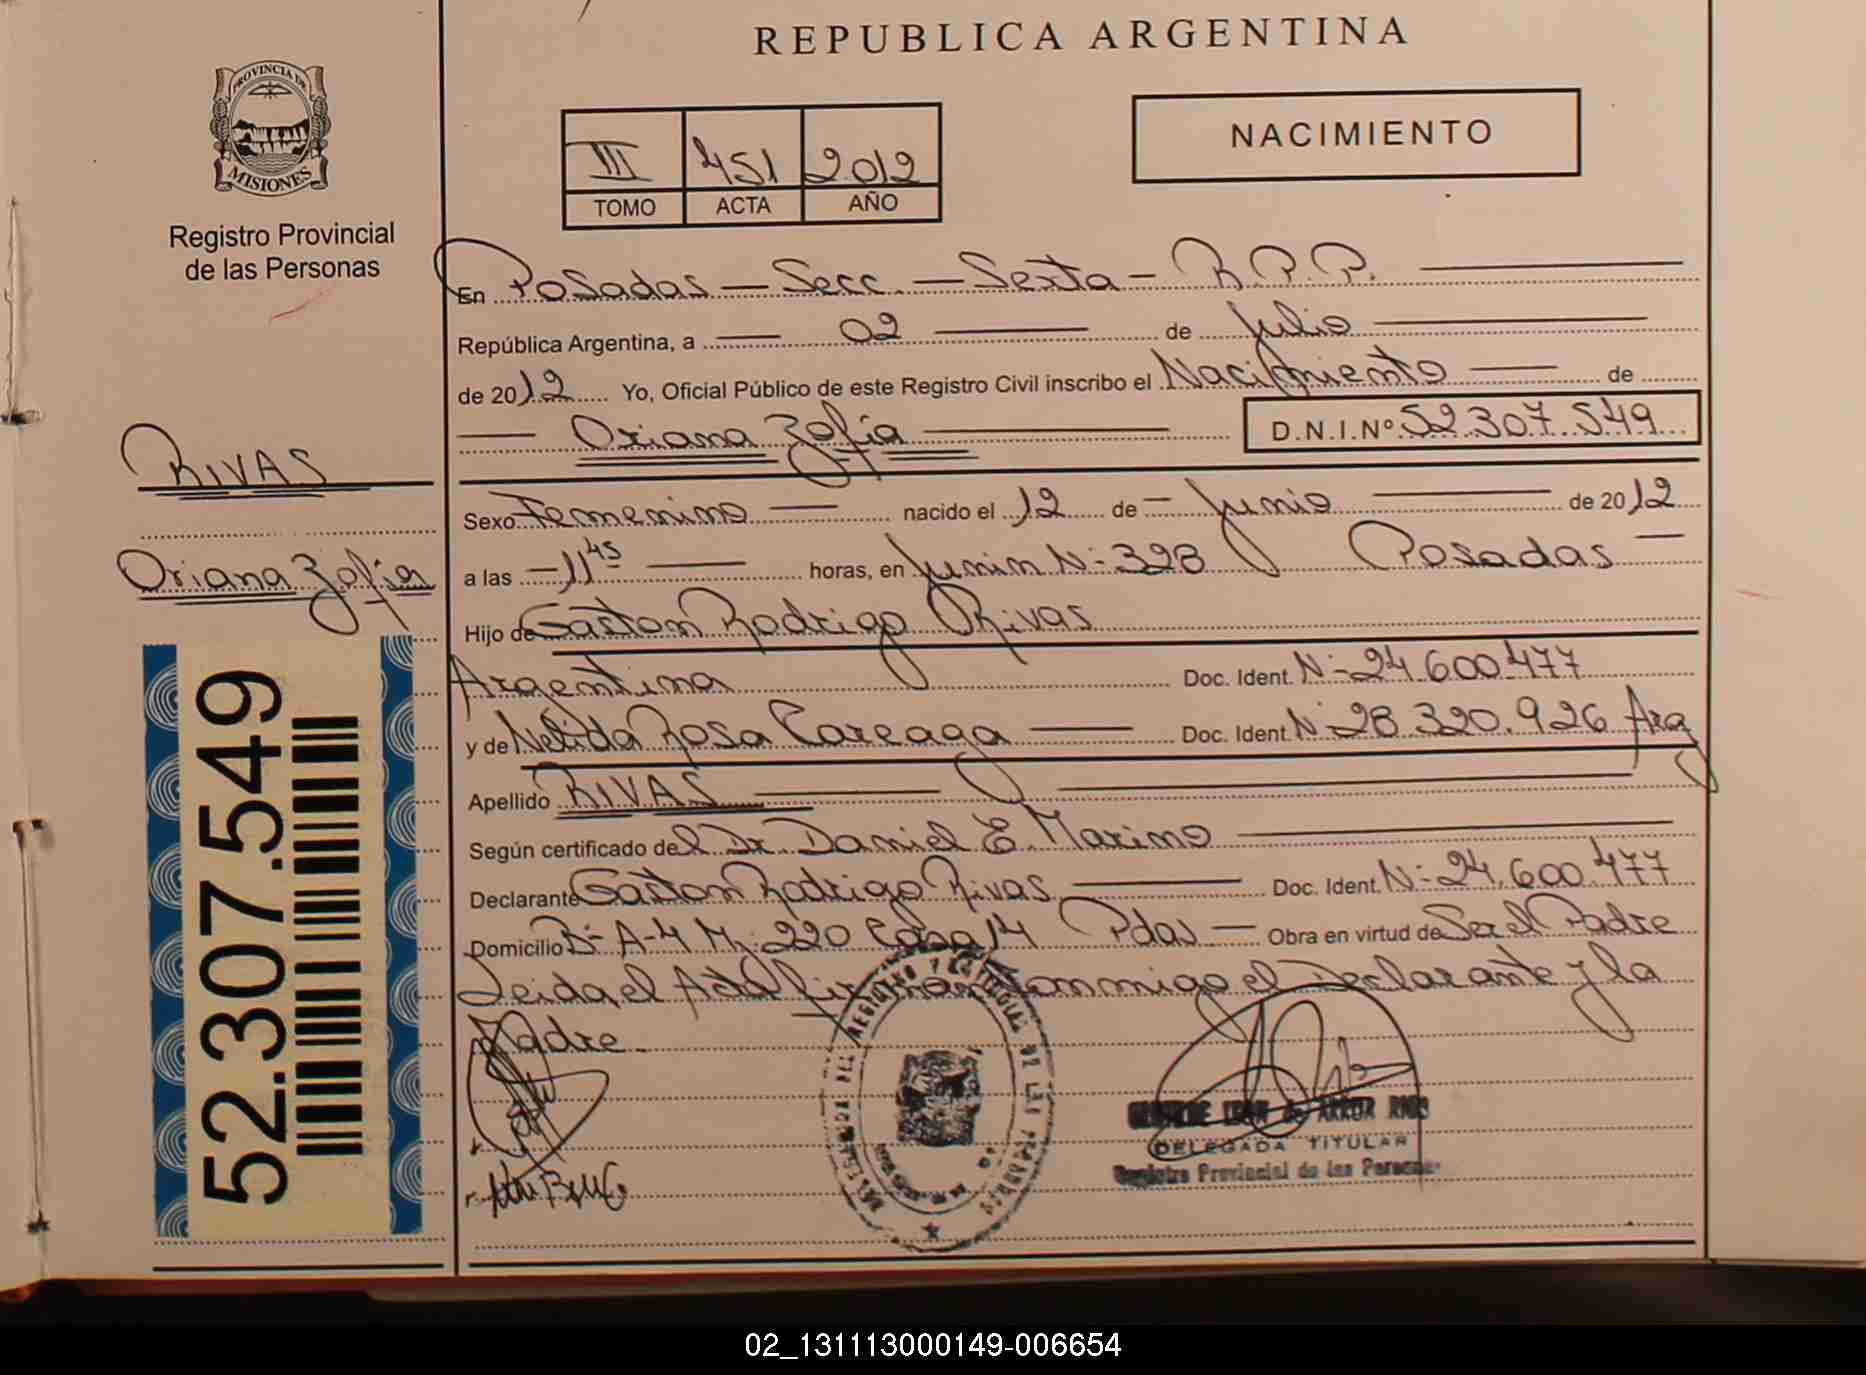 REPUBLICA ARGENTINA
PROVINCIA DE
MISIONES
Registro Provincial
de las Personas
III 451 2012
TOMO ACTA AÑO
NACIMIENTO
En Posadas — Secc. — Sexta — R.P.P.
República Argentina, a — 02 — de Julio
de 2012 Yo, Oficial Público de este Registro Civil inscribo el Nacimiento — de
— Oriana Zofia — D.N.I.Nº 52.307.549
RIVAS
Oriana Zofia
Sexo Femenino — nacido el 12 de — Junio — de 2012
a las — 11 45 — horas, en Junin N: 328 Posadas —
Hijo de Gaston Rodrigo Rivas
Argentina Doc. Ident. N:- 24.600.477
y de Nelida Rosa Careaga — Doc. Ident. N:- 28.320.926 Arg
Apellido RIVAS
Según certificado del Dr. Daniel E. Marino
Declarante Gaston Rodrigo Rivas — Doc. Ident. N:- 24.600.477
Domicilio Bº A-4 Mz 220 Casa 14 Pdas — Obra en virtud de Ser el Padre
Leida el Acta firman conmigo el Declarante y la
Madre.
52.307.549
DELEGADA TITULAR
Registro Provincial de las Personas
02_131113000149-006654